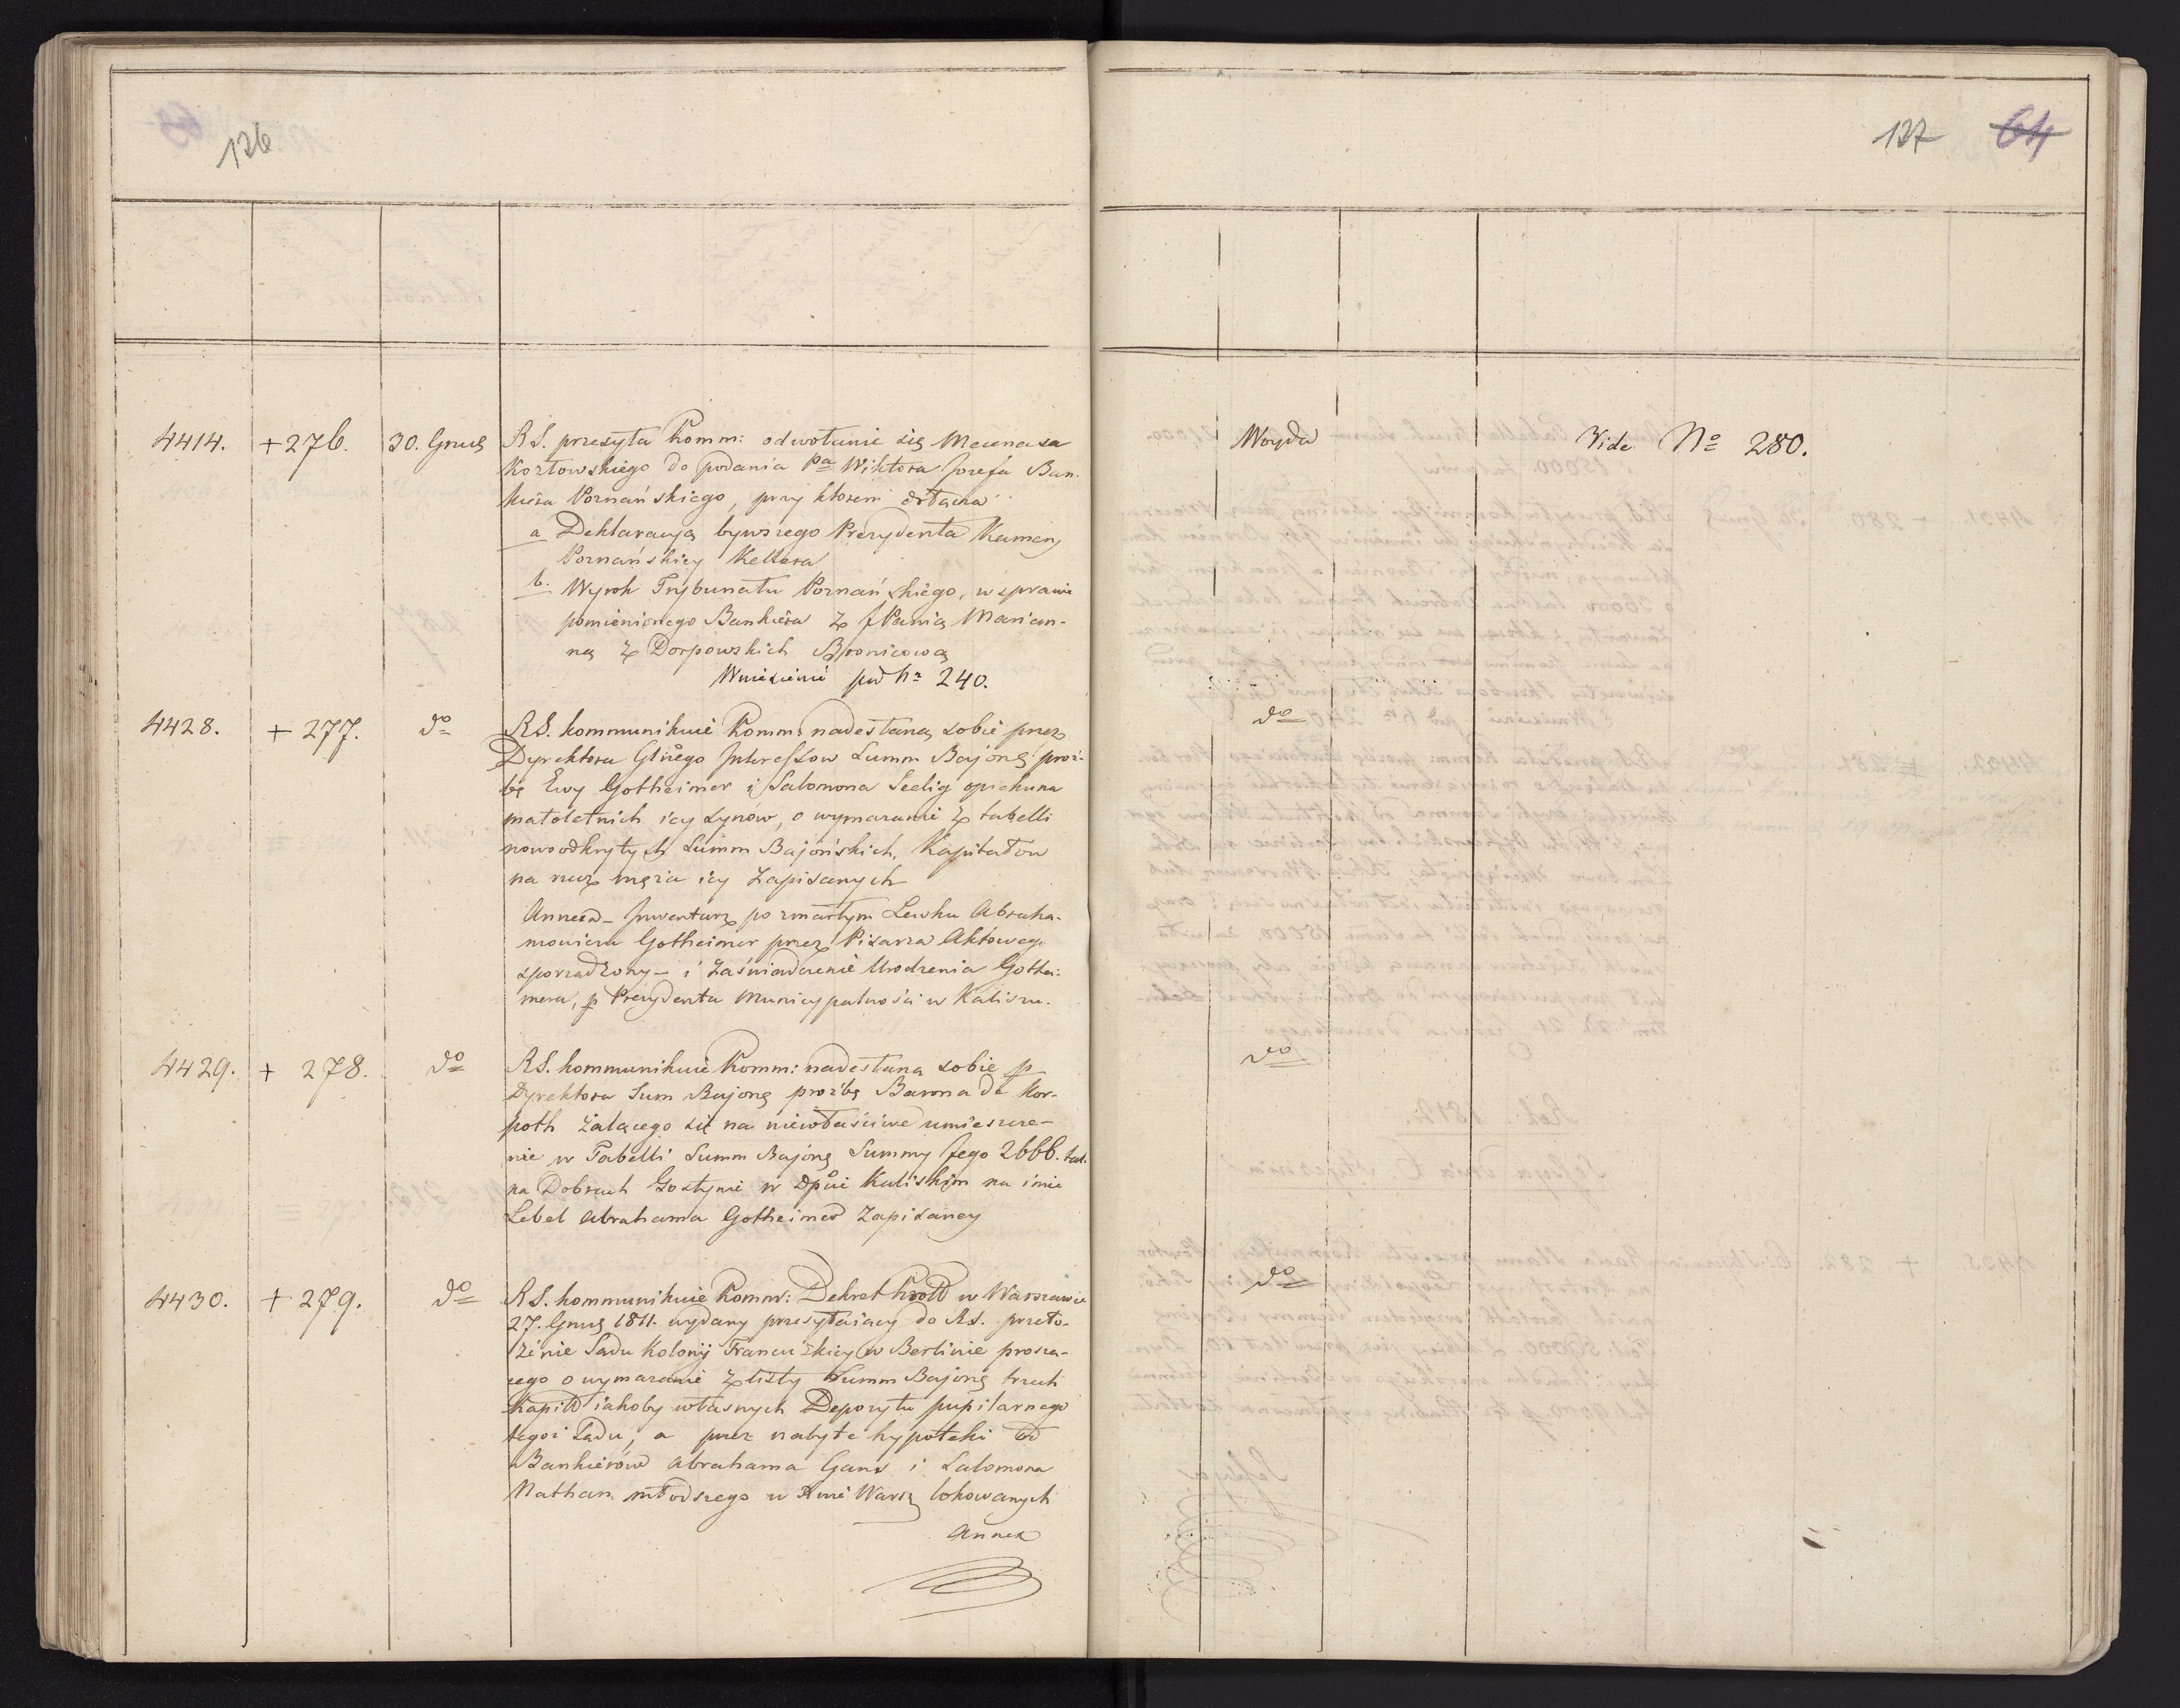 126
4414. + 276. 30. Grud RS. przesyła Komm: odwołanie się Mecenasa
Kozłowskiego do podania Pa Wiktora Jozefa Ban-
kiera Poznańskiego, przy ktorem dołacza
a Deklaracyą bywszego Prezydenta Kamery
Poznańskiey Kellera
b. Wyrok Trybunału Poznańskiego, w sprawie
pomienionego Bankiera z JPanią Marian-
ną z Dorpowskich Bronicową
Wniesienie pod Nr 240.
4428. + 277. do RS. kommunikuie Komm: nadesłaną sobie przez
Dyrektora Glnego Interessow Summ Bajońs proź-
bę Ewy Gotheimer i Salomona Seelig opiekuna
małoletnich iey synów, o wymazanie z tabelli
nowoodkrytych Summ Bajońskich, Kapitałow
na rzecz męża iey zapisanych
Annexa - Inwentarz po zmarłym Lewku Abraha-
mowiczu Gotheimer przez Pisarza Aktowego
sporządzony - i zaświadczenie Urodzenia Gothei-
mera, p Prezydenta Municypalności w Kaliszu.
4429. + 278. do RS. kommunikuie Komm: nadesłana sobie p
Dyrektora Sum Bajońs proźbę Barona de Kor-
poth żalącego się na niewłaściwe umieszcze-
nie w Tabelli Summ Bajońs Summy Jego 2666. tal.
na Dobrach Gostynie w Dpcie Kaliskim na imie
Lebel Abrahama Gotheimer zapisaney
4430. + 279. do RS. kommunikuie Komm: Dekret w Warszawie
27. Grud 1811. wydany przesyłaiący do RS. przeło-
żenie Sądu Kolonij Francuzkiey w Berlinie prosza-
cego o wymazanie z listy Summ Bajońs trzech
Kapitł iakoby własnych Depozytu pupilarnego
tegoż Sądu, a przez nabyte hypoteki od
Bankierów Abrahama Gans i Salomona
Nathan młodszego w Warsz lokowanych
Annex
127 64
Woyda Vide No 280.
do
do
do